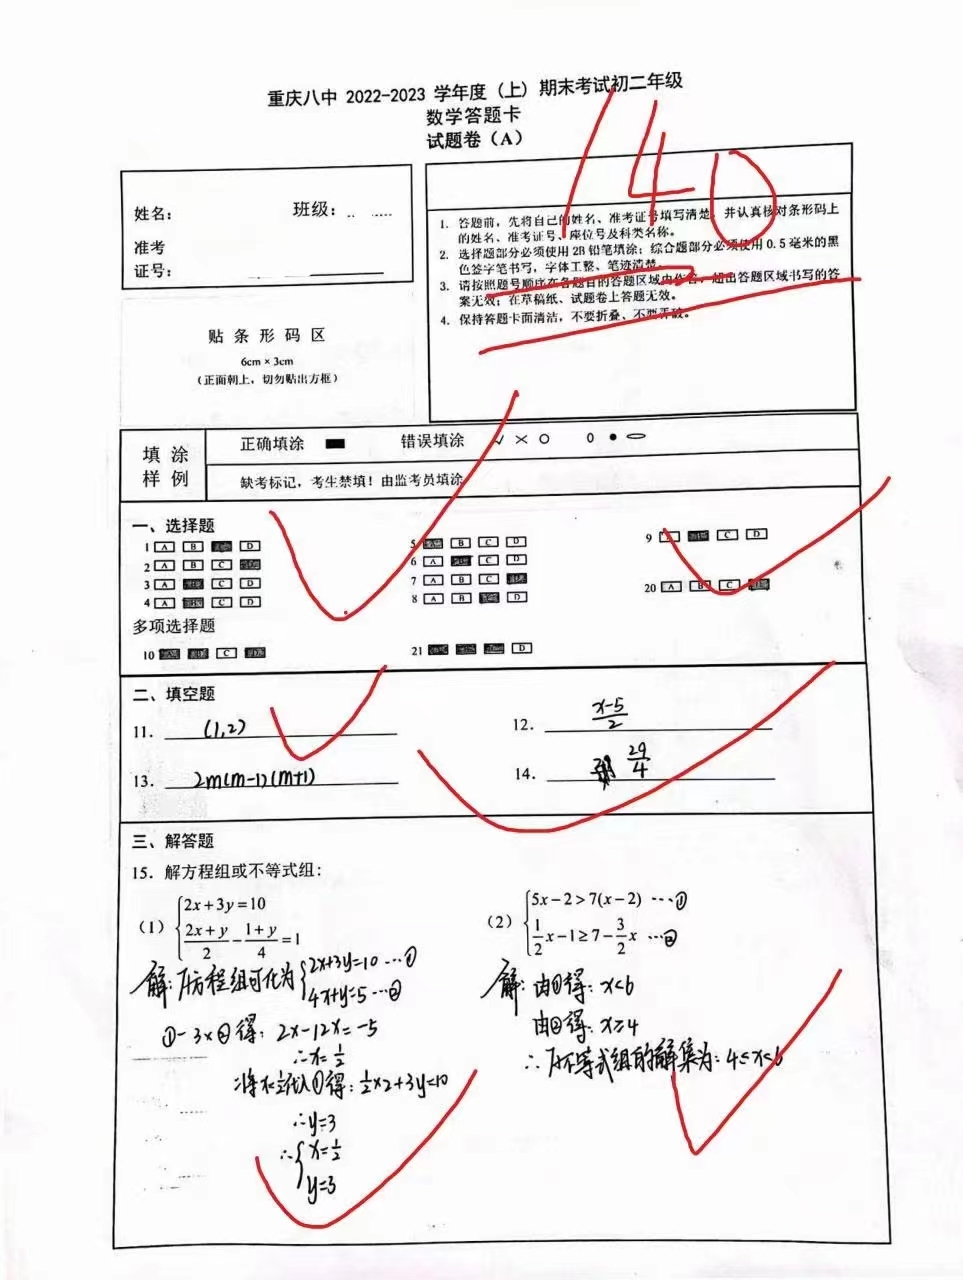 重庆八中 2022-2023 学年度（上）期末考试初二年级
数学答题卡
试题卷（A）
140
姓名：
班级：
准考
证号：
1. 答题前，先将自己的姓名、准考证号填写清楚，并认真核对条形码上
的姓名、准考证号、座位号及科类名称。
2. 选择题部分必须使用 2B 铅笔填涂；综合题部分必须使用 0.5 毫米的黑
色签字笔书写，字体工整、笔迹清楚。
3. 请按照题号顺序在各题目的答题区域内作答，超出答题区域书写的答
案无效；在草稿纸、试题卷上答题无效。
4. 保持答题卡面清洁，不要折叠、不要弄破。
贴 条 形 码 区
6cm × 3cm
（正面朝上，切勿贴出方框）
填 涂
样 例
正确填涂
错误填涂
缺考标记，考生禁填！由监考员填涂
一、选择题
1 A B D
2 A B C
3 A C D
4 A C D
5 B C D
6 A C D
7 A B C
8 A B D
9 A C D
20 A B C
多项选择题
10 C
21 D
二、填空题
11. (1,2)
12. x-5/2
13. 2m(m-1)(m+1)
14. 29/4
三、解答题
15. 解方程组或不等式组：
（1）{2x+3y=10
(2x+y)/2-(1+y)/4=1
解：原方程组可化为{2x+3y=10 …①
4x+y=5 …②
①-3×②得：2x-12x=-5
∴x=1/2
将x=1/2代入①得：1/2×2+3y=10
∴y=3
∴{x=1/2
y=3
（2）{5x-2>7(x-2) …①
1/2x-1≥7-3/2x …②
解：由①得：x<6
由②得：x≥4
∴原不等式组的解集为：4≤x<6